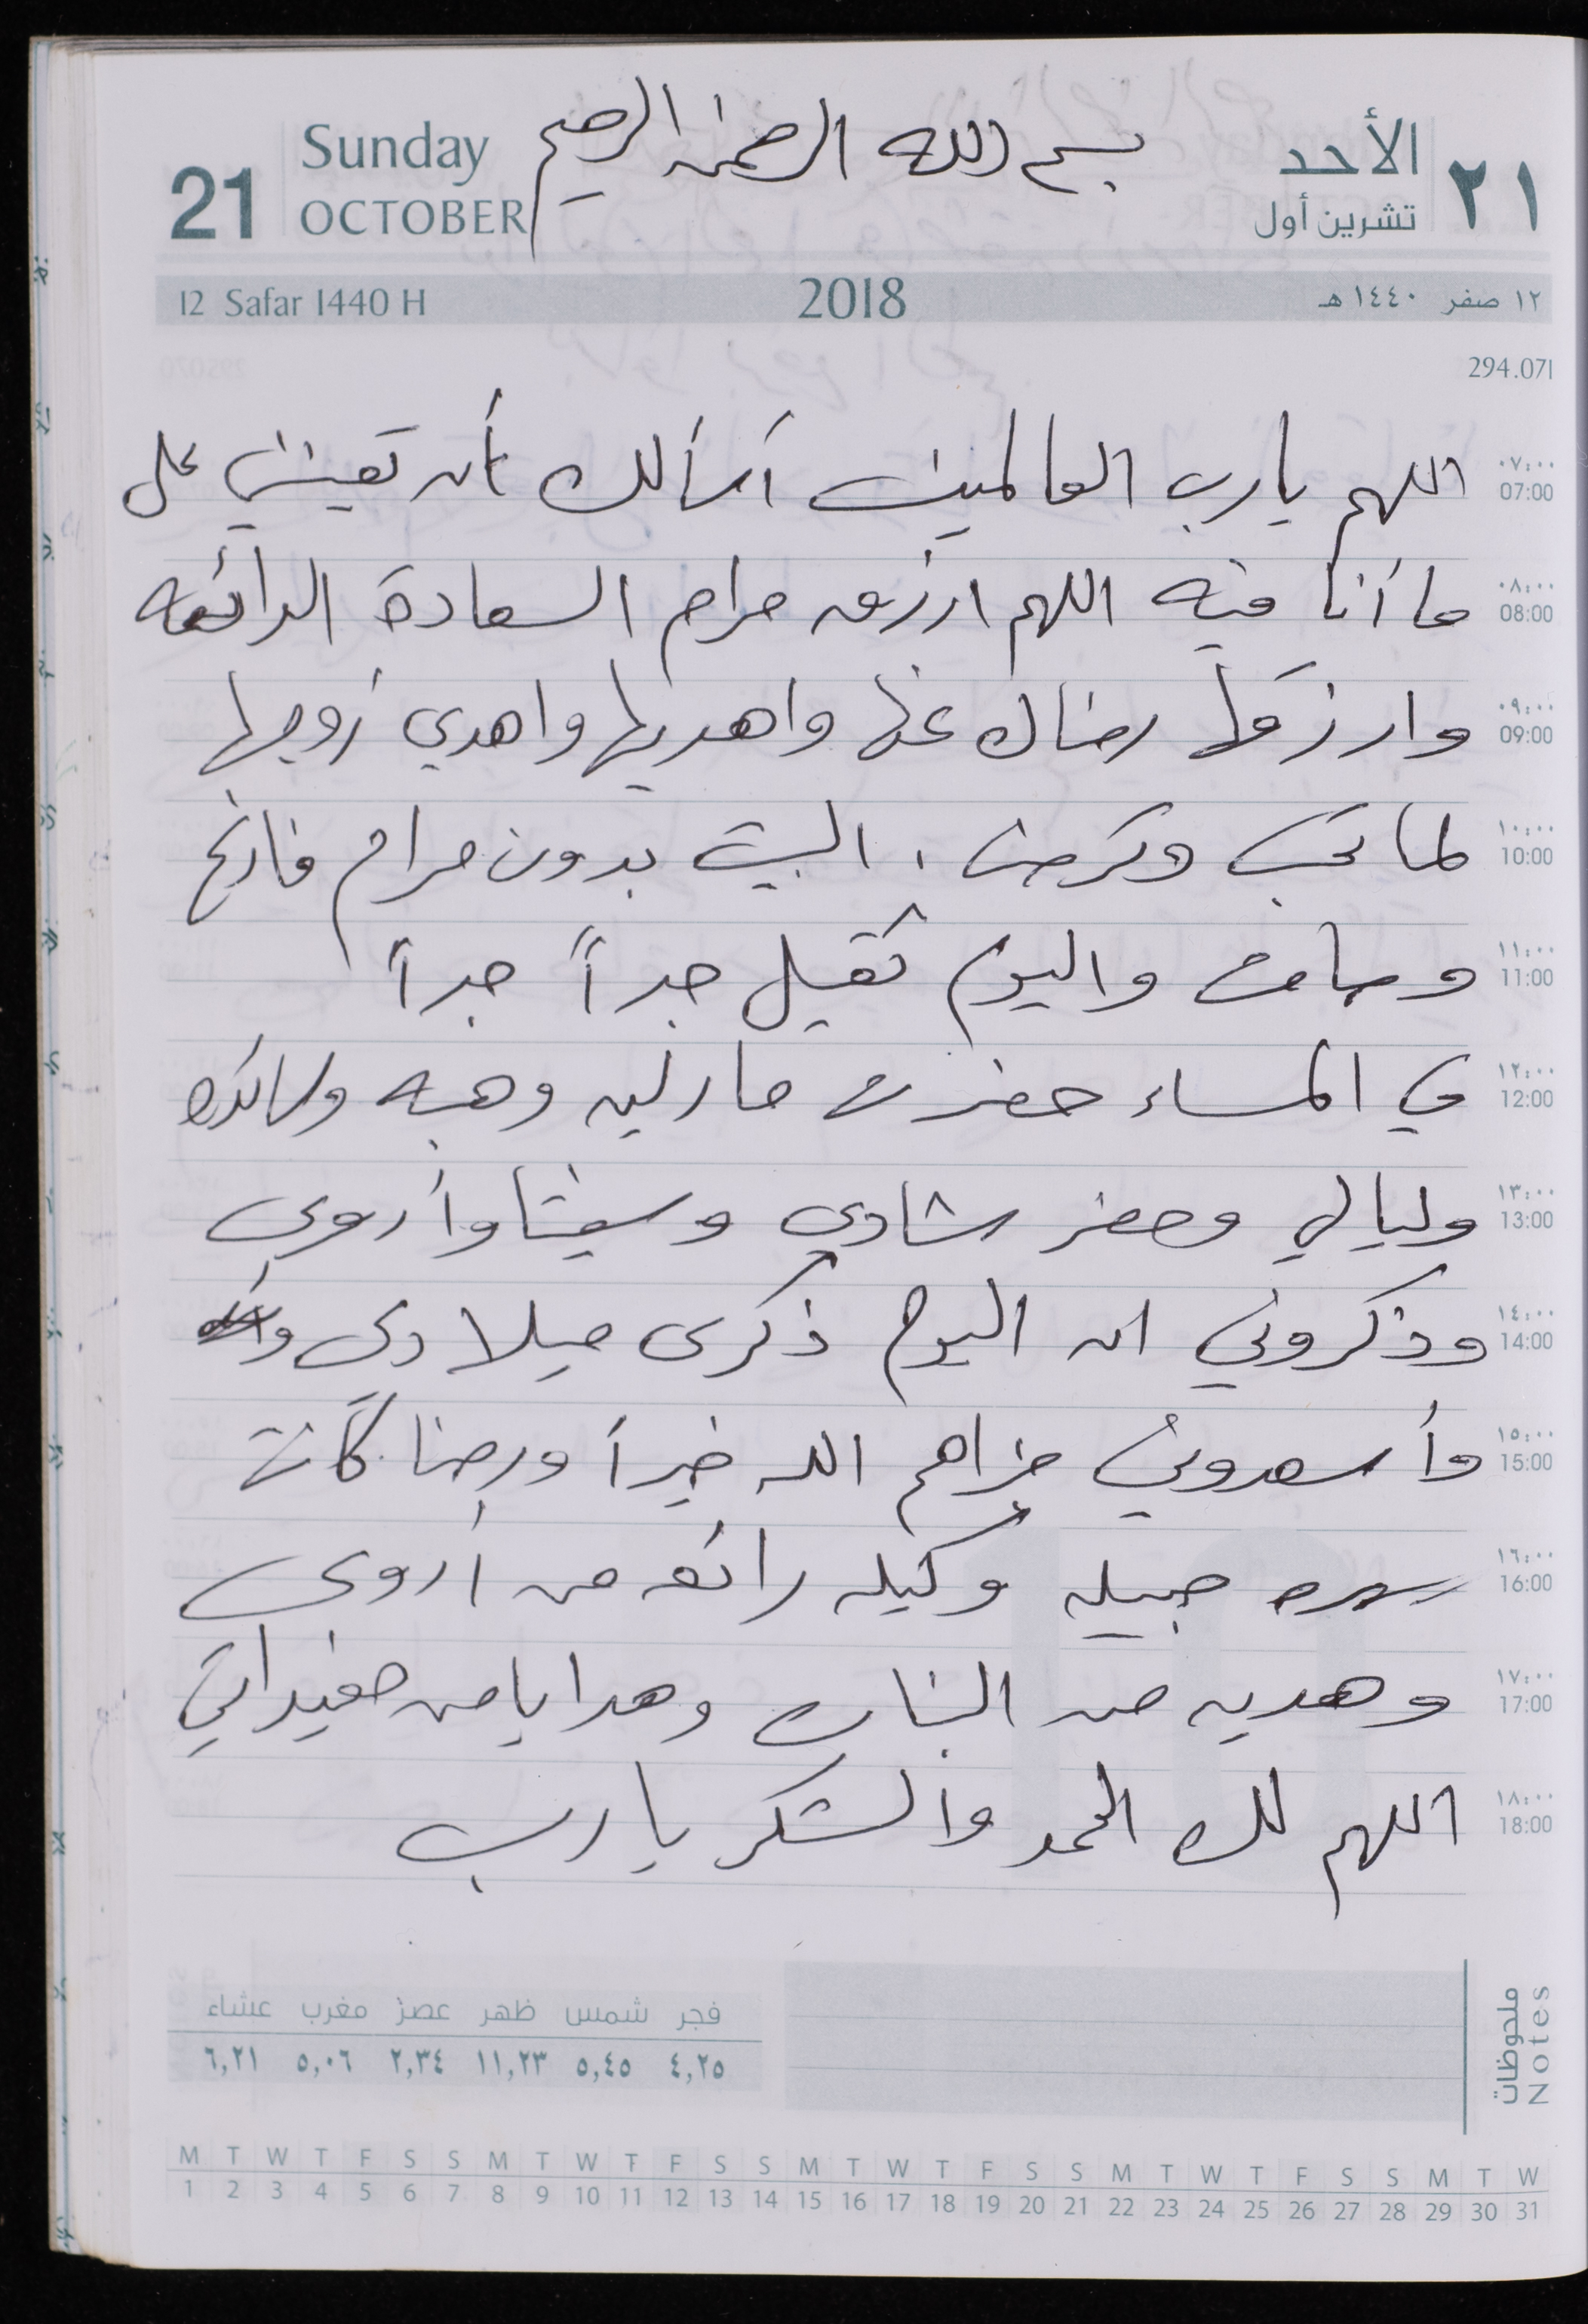 الأحد ٢١ تشرين أول
21 Sunday OCTOBER
بسم الله الرحمن الرحيم
12 Safar 1440 H 2018 ١٢ صفر ١٤٤٠ هـ
294.071
٠٧:٠٠ 07:00 اللهم يا رب العالمين أسألك أن تعينني على
٠٨:٠٠ 08:00 ما أنا فيه اللهم ارزق مرام السعادة الدائمه
٠٩:٠٠ 09:00 وارزقها رضاك عنها واهديها واهدي زوجها
١٠:٠٠ 10:00 لما تحب وترضى . البيت بدون مرام فارغ
١١:٠٠ 11:00 وصامت واليوم ثقيل جداً جداً
١٢:٠٠ 12:00 في المساء حضرت مارلين وهبه
١٣:٠٠ 13:00 وليالي وحضر شادي وأروى
١٤:٠٠ 14:00 وذكروني ان اليوم ذكرى ميلادي
١٥:٠٠ 15:00 وأسعدوني جزاهم الله خيراً ورضا كانت
١٦:٠٠ 16:00 سهره جميله وكيكه رائعه من أروى
١٧:٠٠ 17:00 وهديه من البنات وهدايا من حفيداتي
١٨:٠٠ 18:00 اللهم لك الحمد والشكر يا رب
ملحوظات Notes
فجر شمس ظهر عصر مغرب عشاء
٤,٢٥ ٥,٤٥ ١١,٢٣ ٢,٣٤ ٥,٠٦ ٦,٢١
M T W T F S S M T W T F S S M T W T F S S M T W T F S S M T W
1 2 3 4 5 6 7 8 9 10 11 12 13 14 15 16 17 18 19 20 21 22 23 24 25 26 27 28 29 30 31